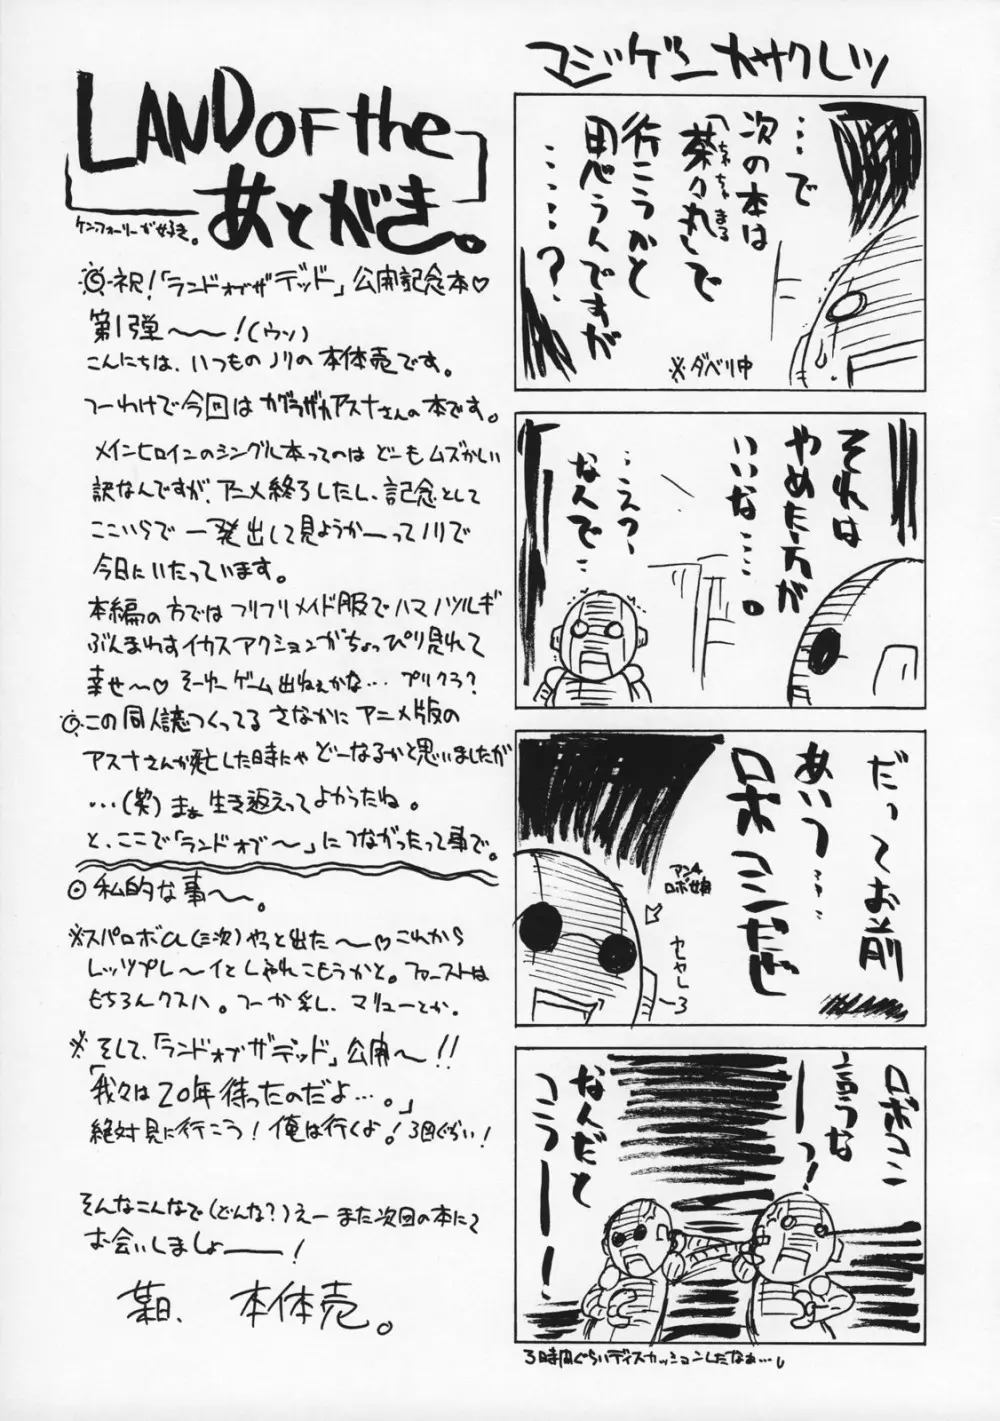 LAND OF the
あとがき。
ケン・フォーリーが好き。
祝!「ランドオブザデッド」公開記念本♡
第1弾〜〜!(ウソ)
こんにちは、いつものノリの本体売です。
つーわけで今回はカグラザカアスナさんの本です。
メインヒロインのシングル本ってのはどーもムズかしい
訳なんですが、アニメ終了したし、記念として
ここいらで一発出して見ようかーってノリで
今日にいたっています。
本編の方ではフリフリメイド服でハマノツルギ
ぶんまわすイカスアクションがちょっぴり見れて
幸せ〜♡ そーゆーゲーム出ねぇかな…プリクラ?
この同人誌つくってるさなかにアニメ版の
アスナさんが死亡した時にゃどーなるかと思いましたが
…(笑)まぁ生き返えってよかったね。
と、ここで「ランドオブ〜」につながったって事で。
私的な事〜。
※スパロボα(三次)やっと出た〜♡これから
レッツプレ〜イとしゃれこもうかと。ファーストは
もちろんクスハ。つーか乳、マリューとか。
※そして、「ランドオブザデッド」公開〜!!
「我々は20年待ったのだよ…。」
絶対見に行こう!俺は行くよ!3回ぐらい!
そんなこんなで(どんな?)えーまた次回の本にて
お会いしましょ――!
某日、本体売。
マジゲンカサクレツ
…で
次の本は
「茶々丸」で
ちゃちゃまる
行こうかと
思うんですが
……?
※ダベリ中
それは
やめた方が
いいな…。
…えっ、
なんで…
だってお前
あいつ…
ロボコンだぜ
アンチ
ロボ娘
ロボコン
言うな
ーっ!
なんだと
コラーー!
3時間ぐらいディスカッションしたなぁ…。